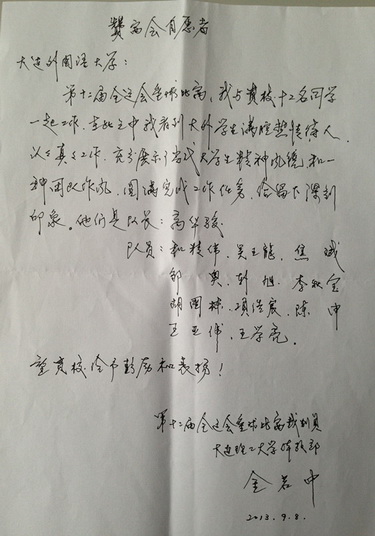 赞高会自愿者
大连外国语大学：
第十二届全运会垒球比赛，我与贵校十二名同学
一起工作，在此之中我看到大外学生满腔热情待人，
认认真真工作，充分展示了当代大学生精神风貌和一
种团队作风，圆满完成工作任务，给留下深刻
印象。他们是队长：高华骏
队员：和精伟、吴玉龙、焦斌
邹奥、轩旭、李
胡国林、项浩宸、陈申
王亚伟、王学亮。
望贵校给予鼓励和表扬！
第十二届全运会垒球比赛裁判员
大连理工大学体教部
金岩中
2013.9.8.